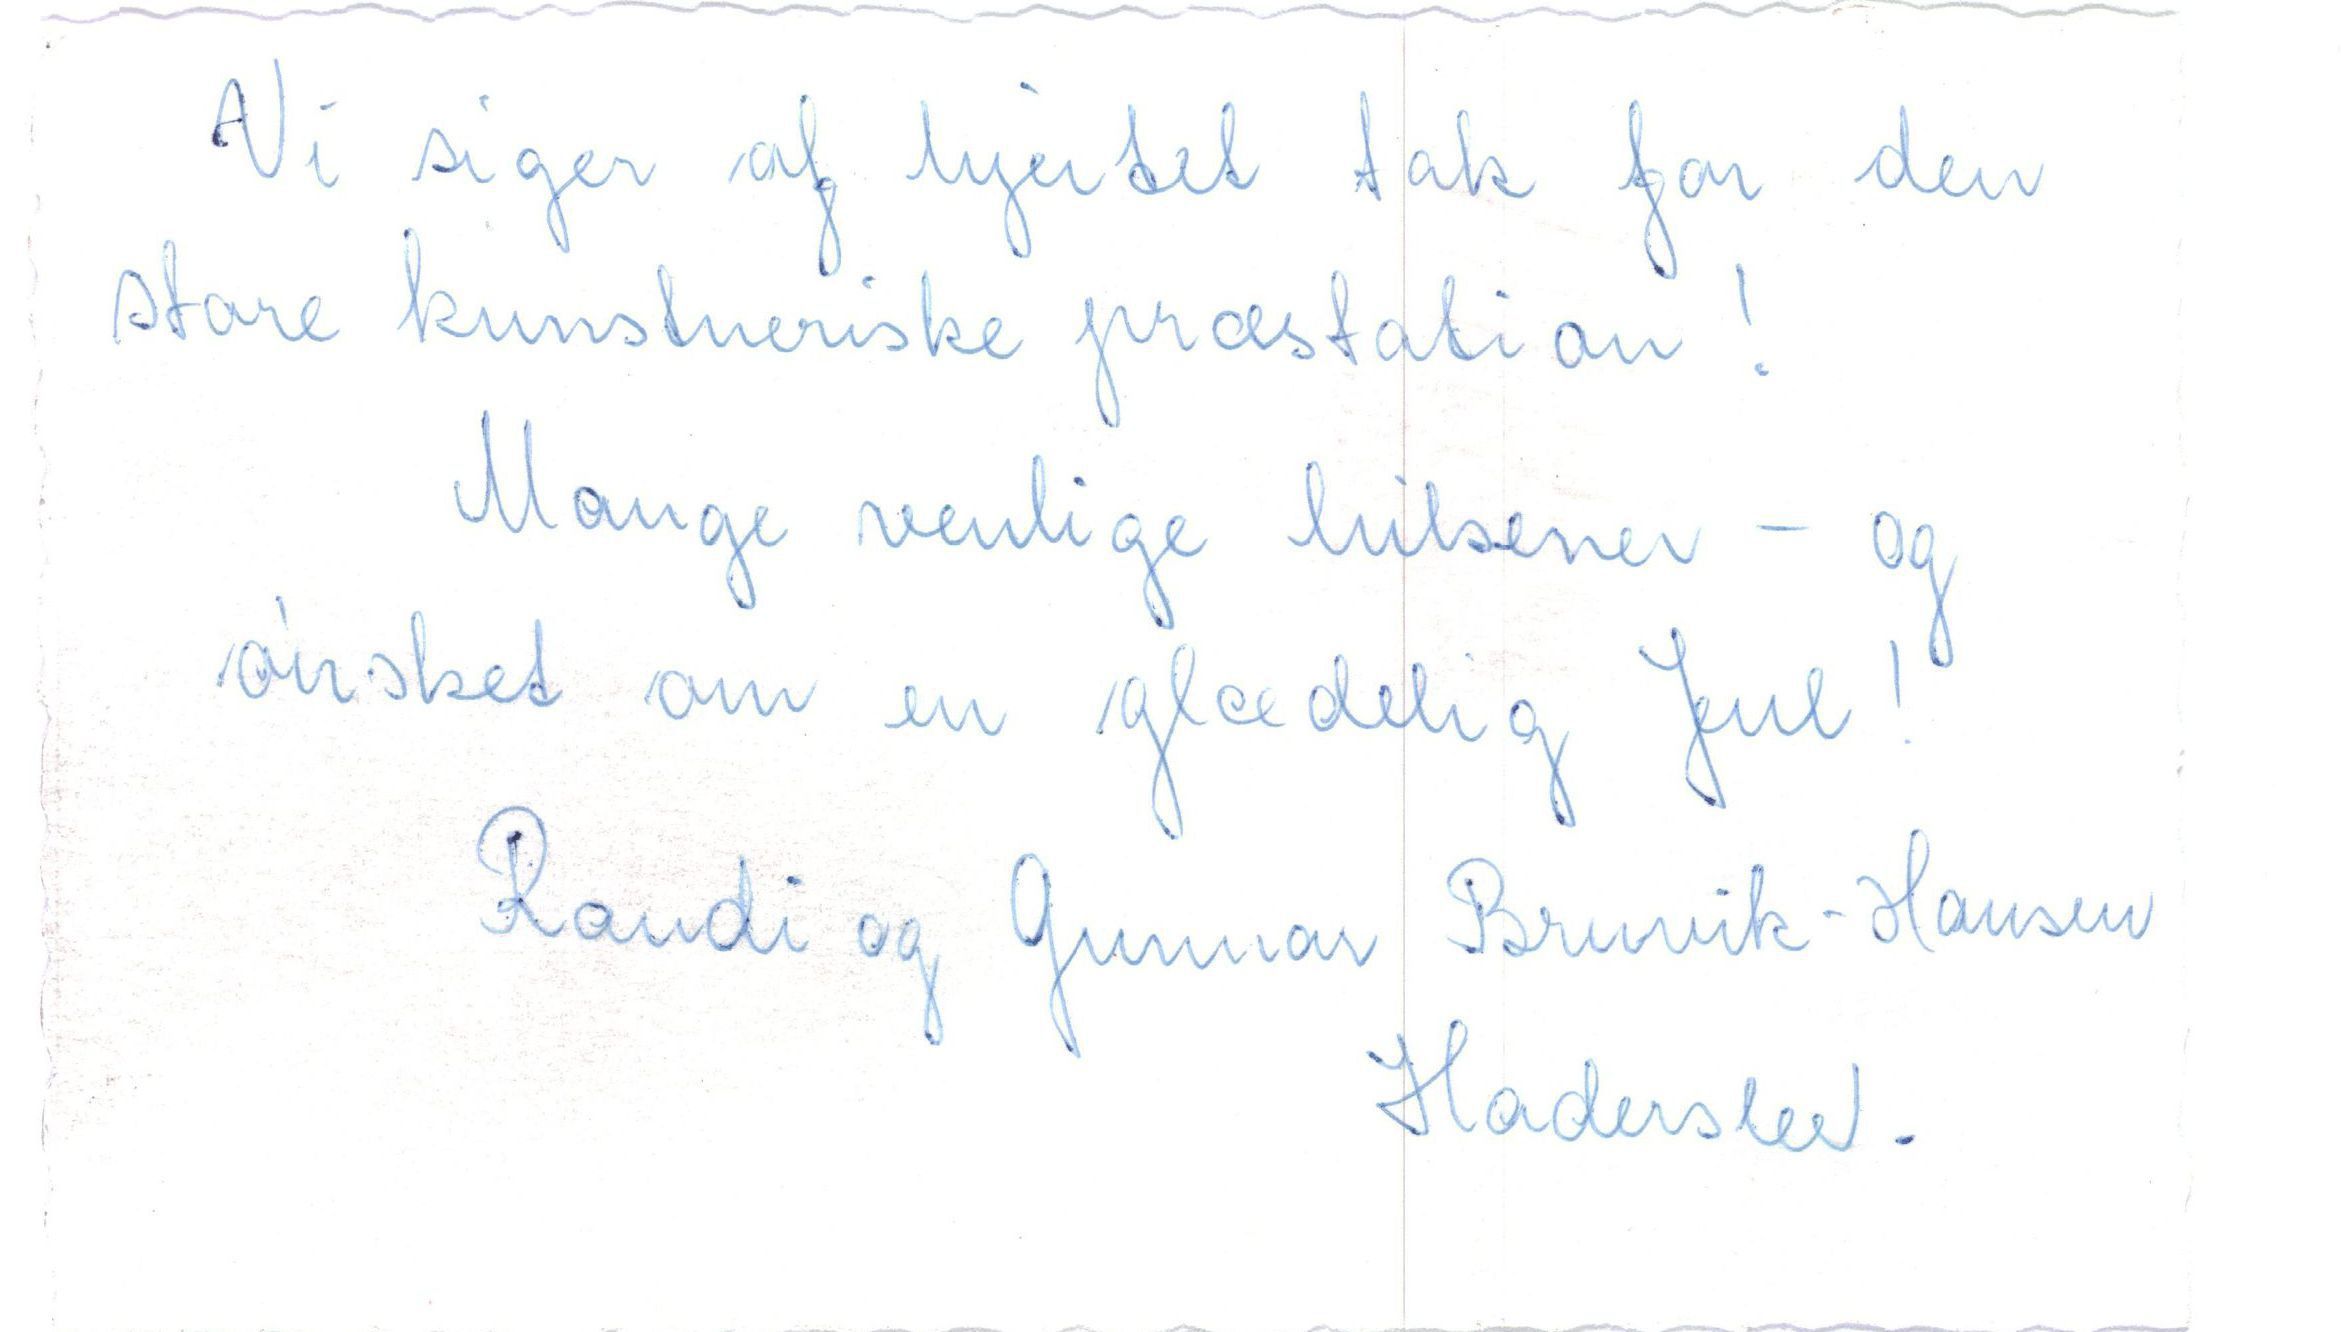 Vi siger af hjertet tak for den
store kunstneriske præstation!
Mange venlige hilsener – og
ønsket om en glædelig Jul!
Randi og Gunnar Bruvik-Hansen
Haderslev.